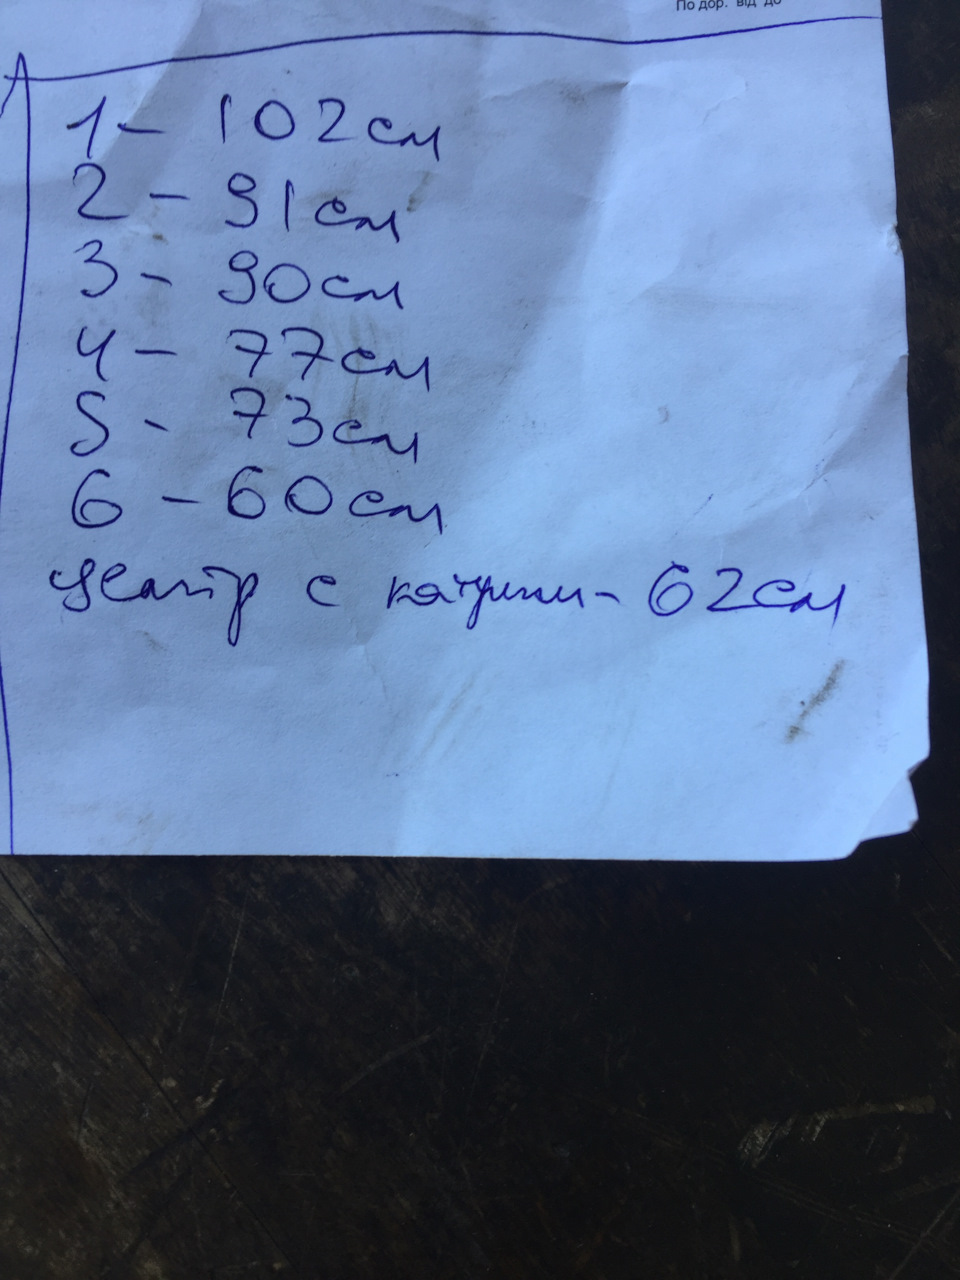 По дор. від до
1 - 102см
2 - 91см
3 - 90см
4 - 77см
5 - 73см
6 - 60см
центр с - 62см